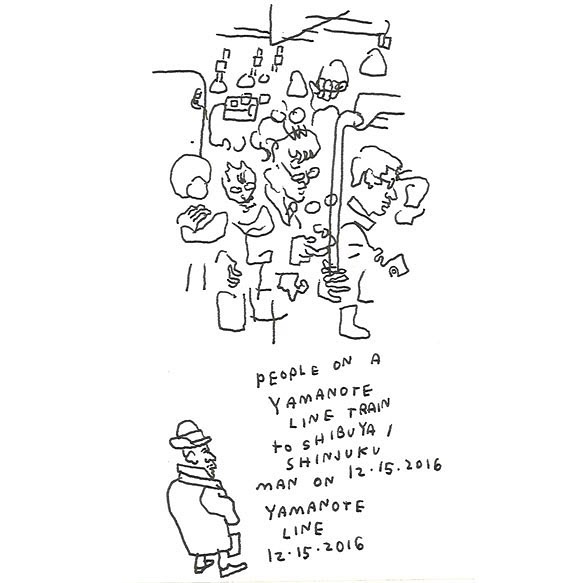 PEOPLE ON A
YAMANOTE
LINE TRAIN
to SHIBUYA /
SHINJUKU
MAN ON 12.15.2016
YAMANOTE
LINE
12.15.2016